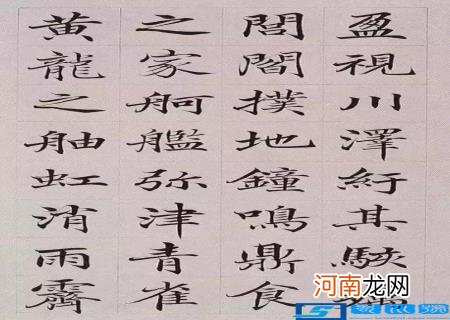 盈視川澤紆其駭
閭閻撲地鐘鳴鼎食
之家舸艦弥津青雀
黄龍之舳虹消雨霽
河南龙网